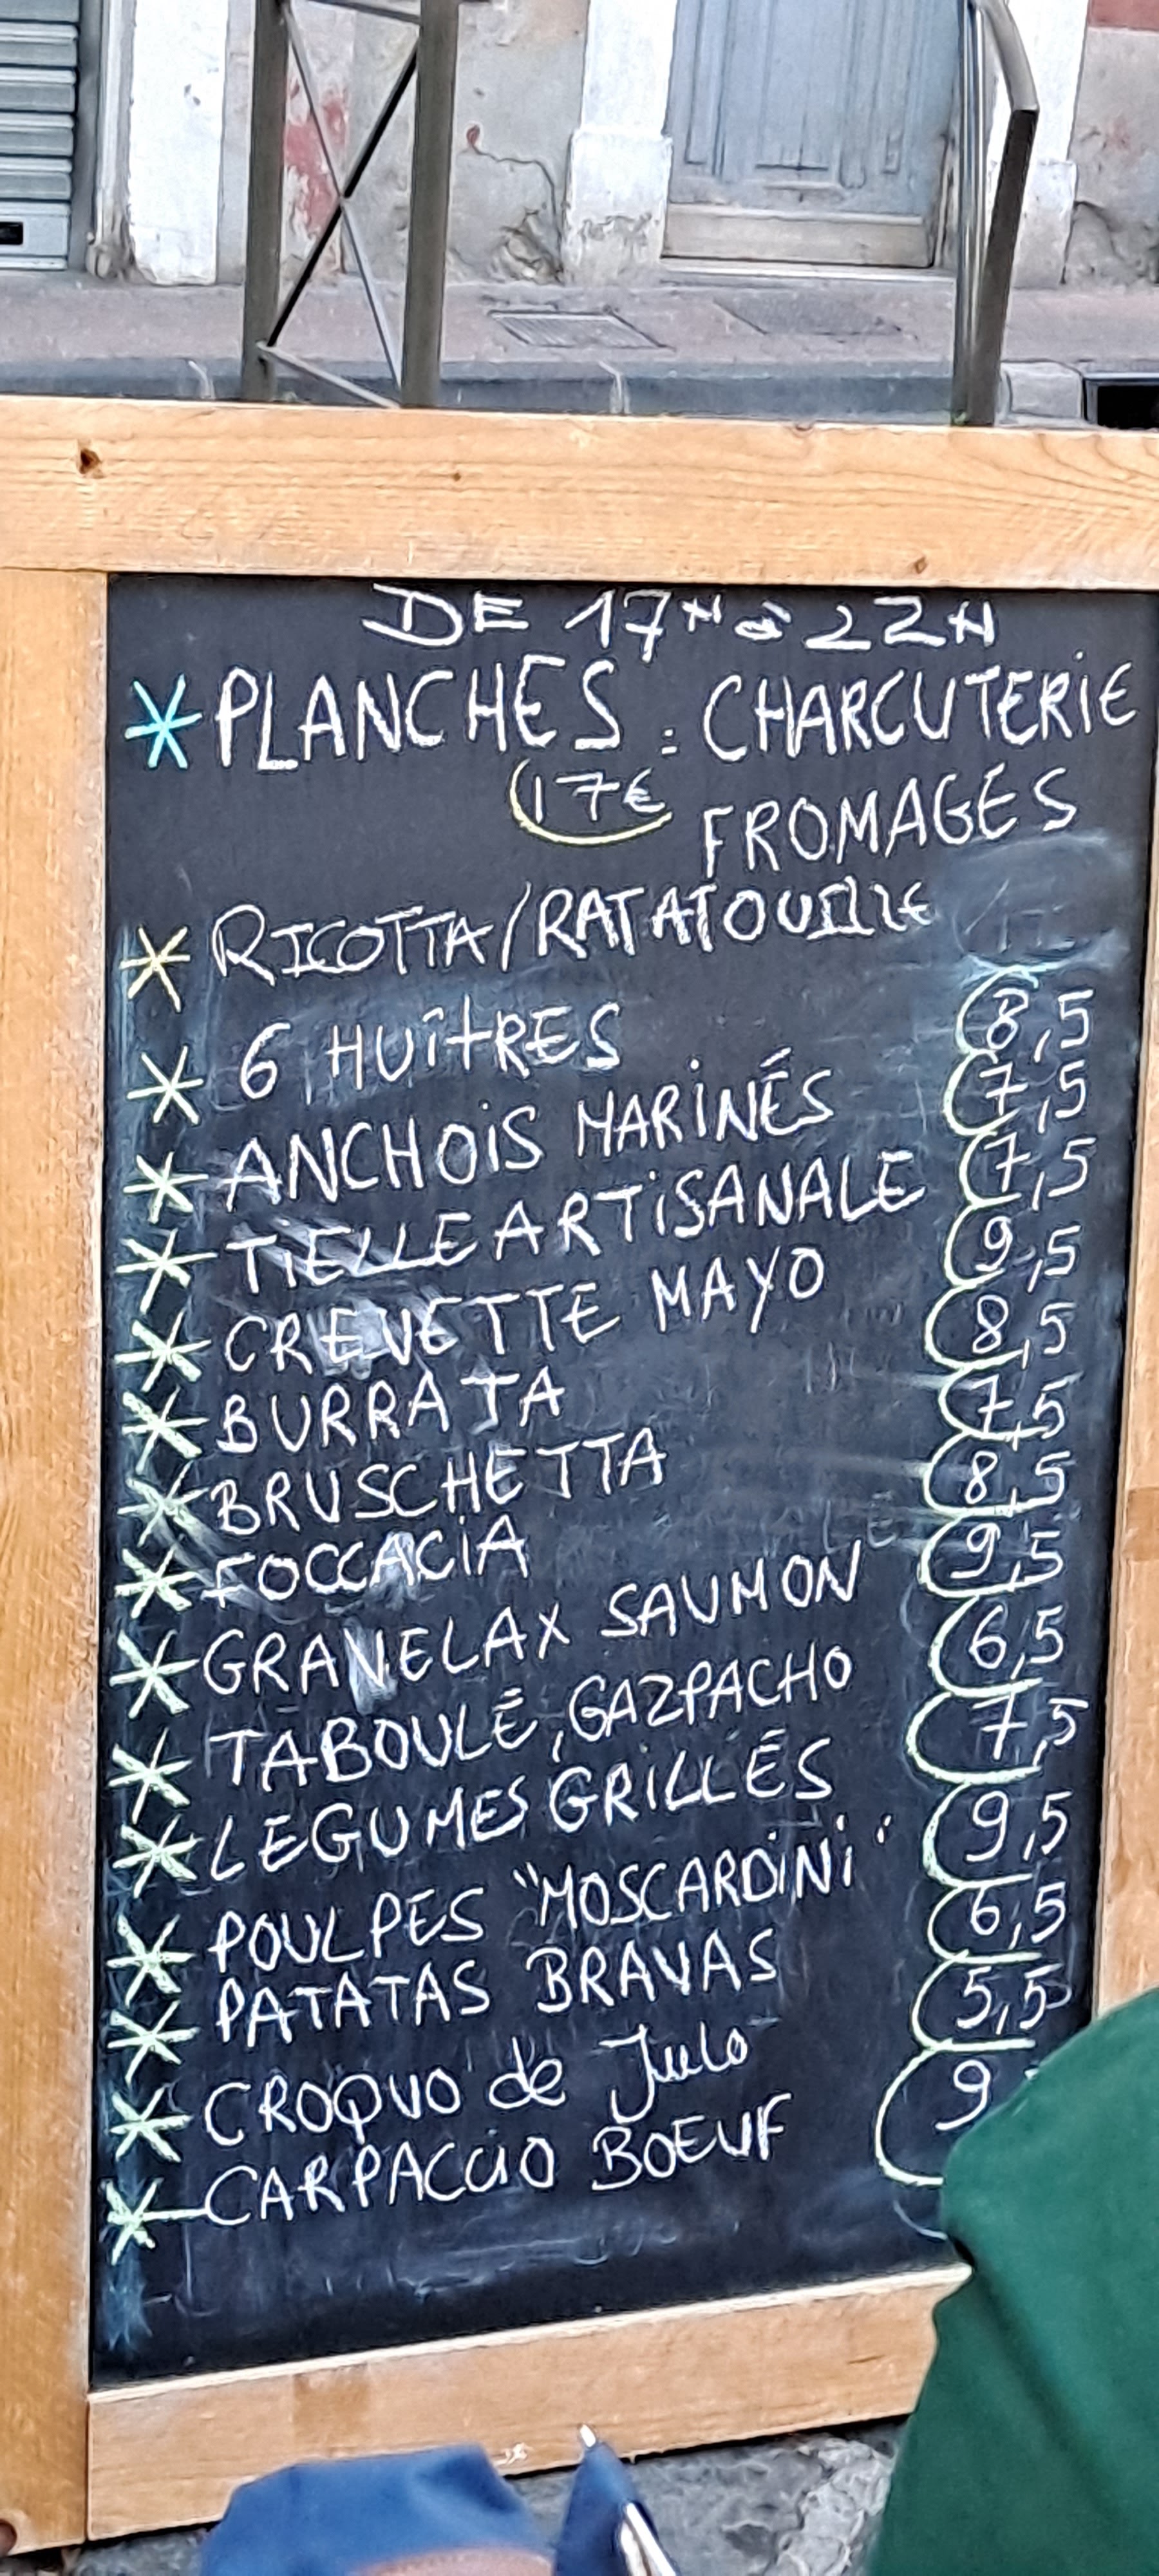 DE 17H à 22H
* PLANCHES : CHARCUTERIE
17€ FROMAGES
* RICOTTA/RATATOUILLE
* 6 HUîTRES 8,5
* ANCHOIS MARINÉS 7,5
* TIELLE ARTISANALE 7,5
* CREVETTE MAYO 9,5
* BURRATA 8,5
* BRUSCHETTA 7,5
* FOCCACIA 8,5
* GRAVELAX SAUMON 9,5
* TABOULÉ, GAZPACHO 6,5
* LEGUMES GRILLÉS 7,5
* POULPES "MOSCARDINI" 9,5
* PATATAS BRAVAS 6,5
* CROQUO de Julo 5,5
* CARPACCIO BOEUF 9